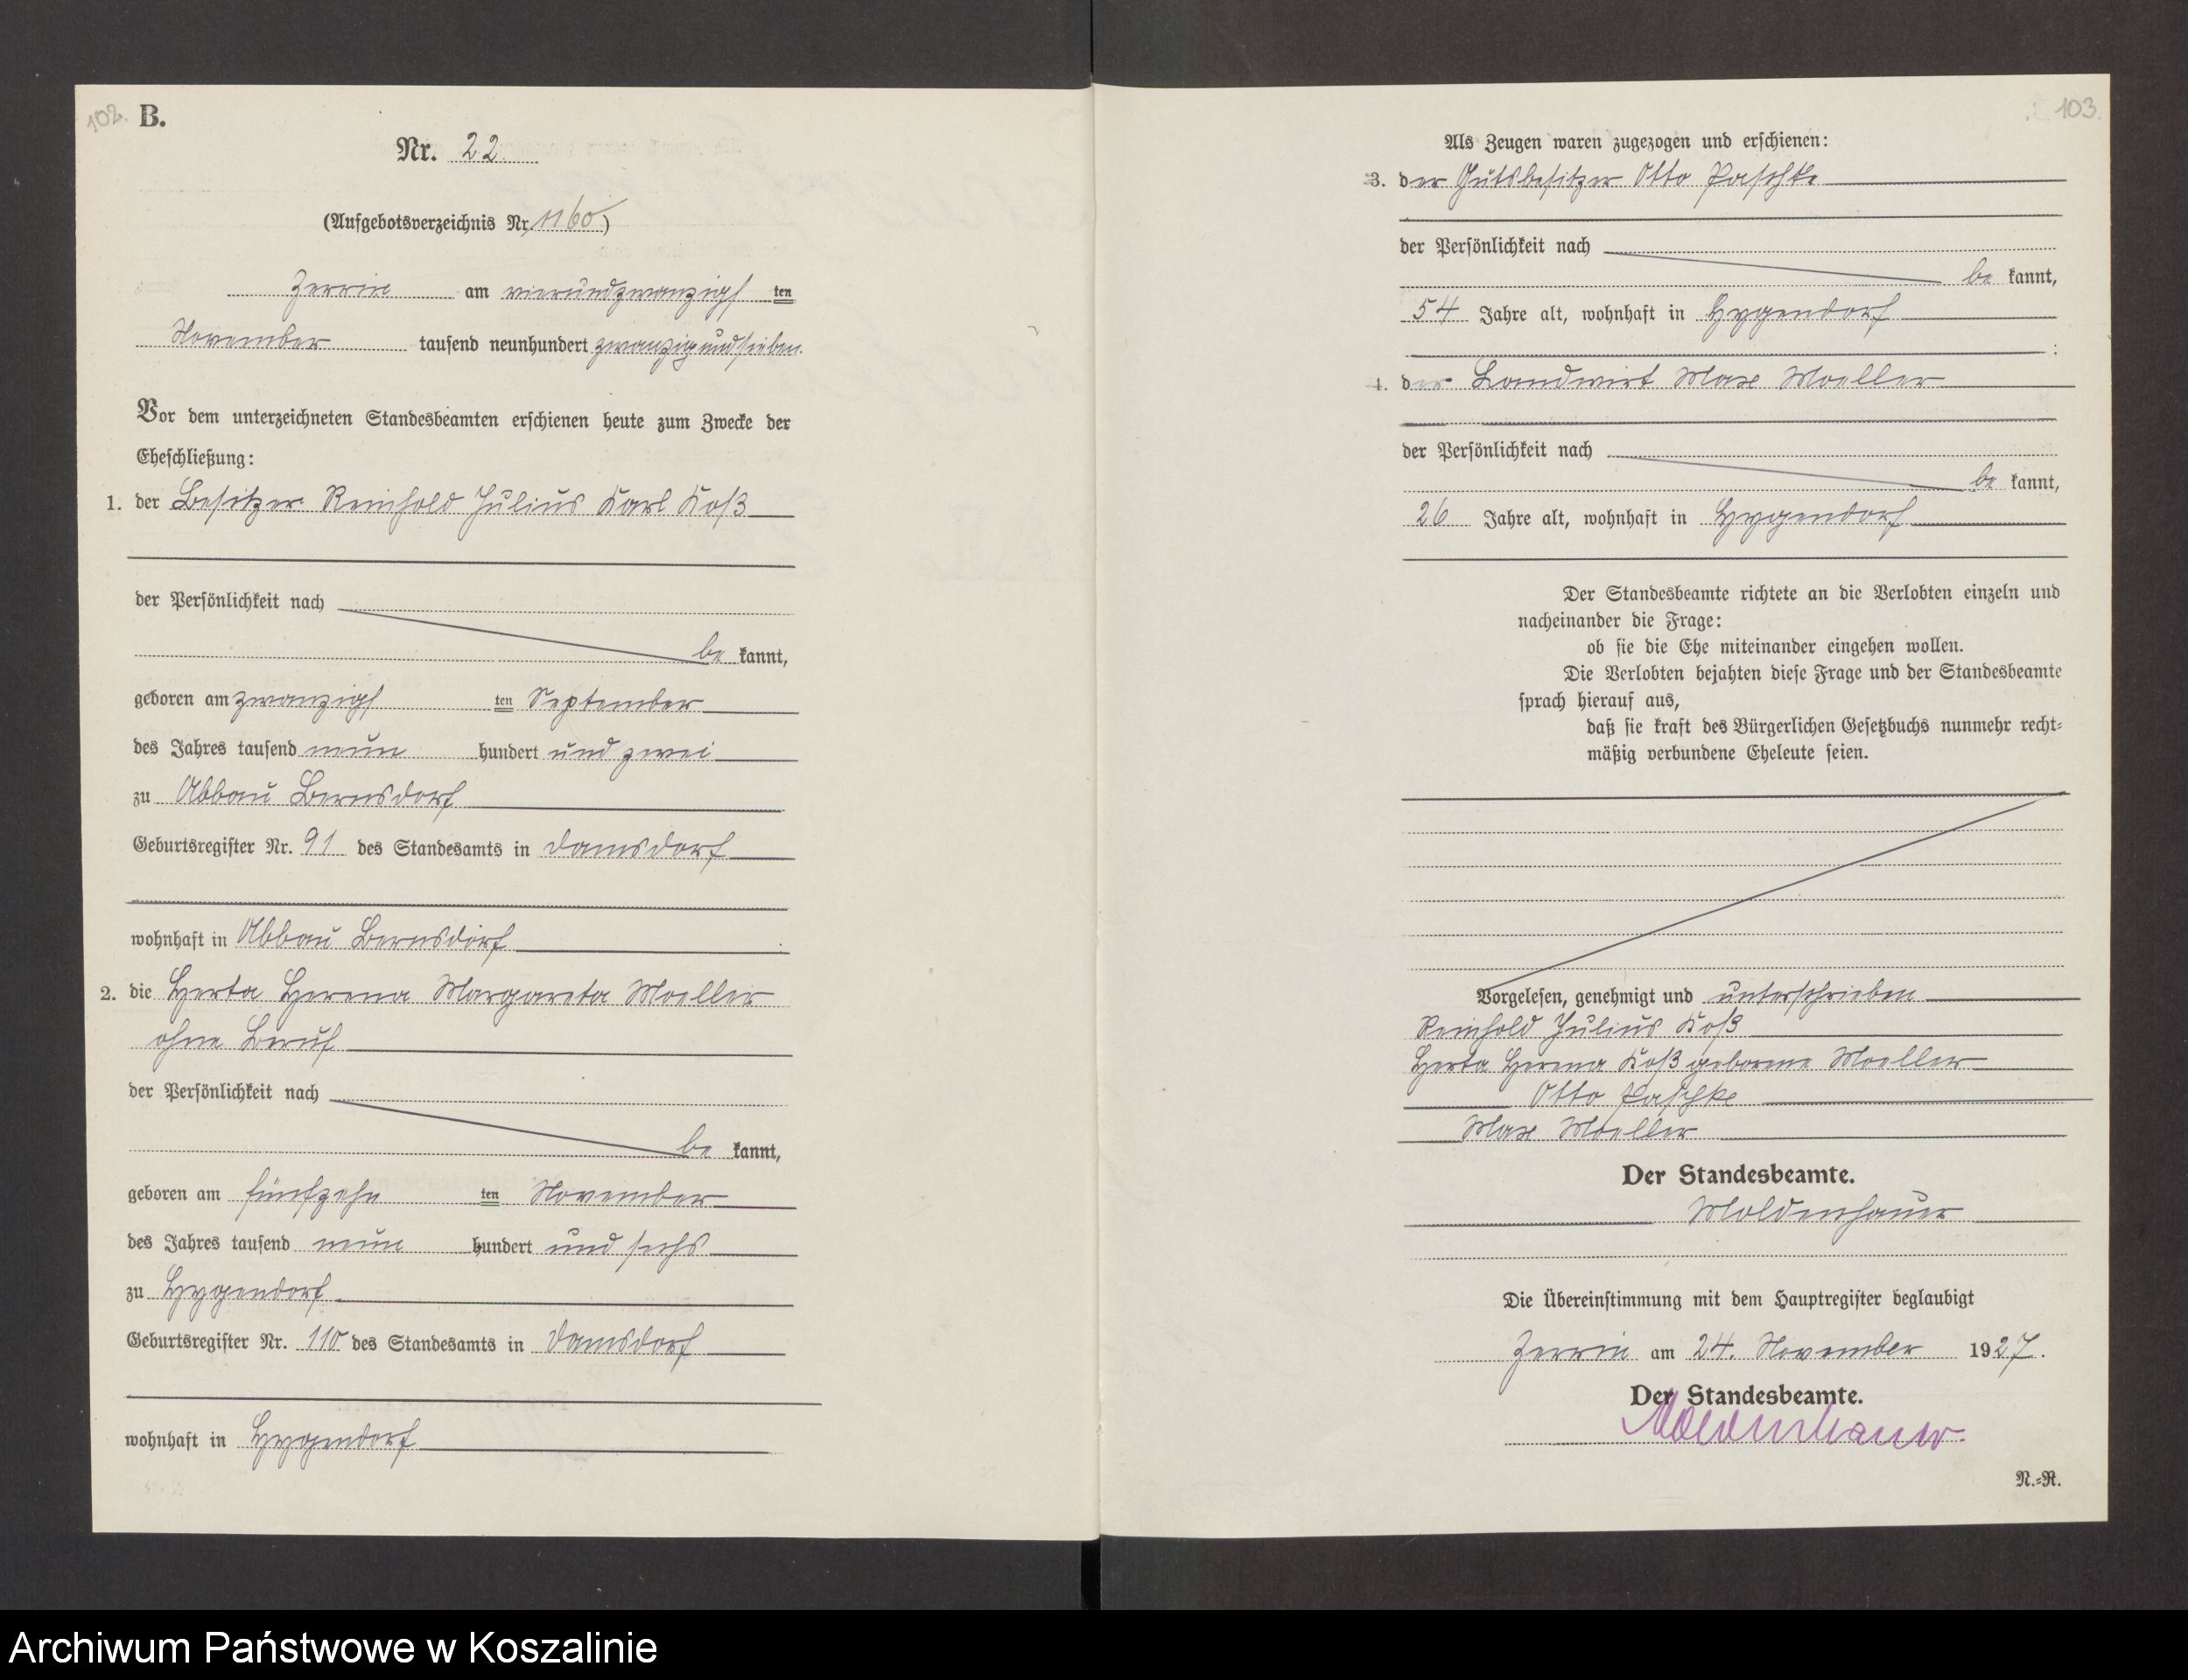 102.
B.
Nr. 22
(Aufgebotsverzeichnis Nr. 1160)
Zerrin am vierundzwanzigsten
November tausend neunhundert zwanzig und sieben.
Vor dem unterzeichneten Standesbeamten erschienen heute zum Zwecke der
Eheschließung:
1. der Besitzer Reinhold Julius Karl Koß
der Persönlichkeit nach
be kannt,
geboren am zwanzigsten September
des Jahres tausend neun hundert und zwei
zu Abbau Bernsdorf
Geburtsregister Nr. 91 des Standesamts in Damsdorf
wohnhaft in Abbau Bernsdorf
2. die Herta Herena Margareta Moeller
ohne Beruf
der Persönlichkeit nach
be kannt,
geboren am fünfzehn ten November
des Jahres tausend neun hundert und sechs
zu Hygendorf
Geburtsregister Nr. 110 des Standesamts in Damsdorf
wohnhaft in Hygendorf
103.
Als Zeugen waren zugezogen und erschienen:
3. der Gutsbesitzer Otto Paschke
der Persönlichkeit nach
be kannt,
54 Jahre alt, wohnhaft in Hygendorf
4. der Landwirt Max Moeller
der Persönlichkeit nach
be kannt,
26 Jahre alt, wohnhaft in Hygendorf
Der Standesbeamte richtete an die Verlobten einzeln und
nacheinander die Frage:
ob sie die Ehe miteinander eingehen wollen.
Die Verlobten bejahten diese Frage und der Standesbeamte
sprach hierauf aus,
daß sie kraft des Bürgerlichen Gesetzbuchs nunmehr recht-
mäßig verbundene Eheleute seien.
Vorgelesen, genehmigt und unterschrieben
Reinhold Julius Koß
Herta Herena Koß geborene Moeller
Otto Paschke
Max Moeller
Der Standesbeamte.
Moldenhauer
Die Übereinstimmung mit dem Hauptregister beglaubigt
Zerrin am 24. November 1927.
Der Standesbeamte.
Moldenhauer.
N.-R.
Archiwum Państwowe w Koszalinie